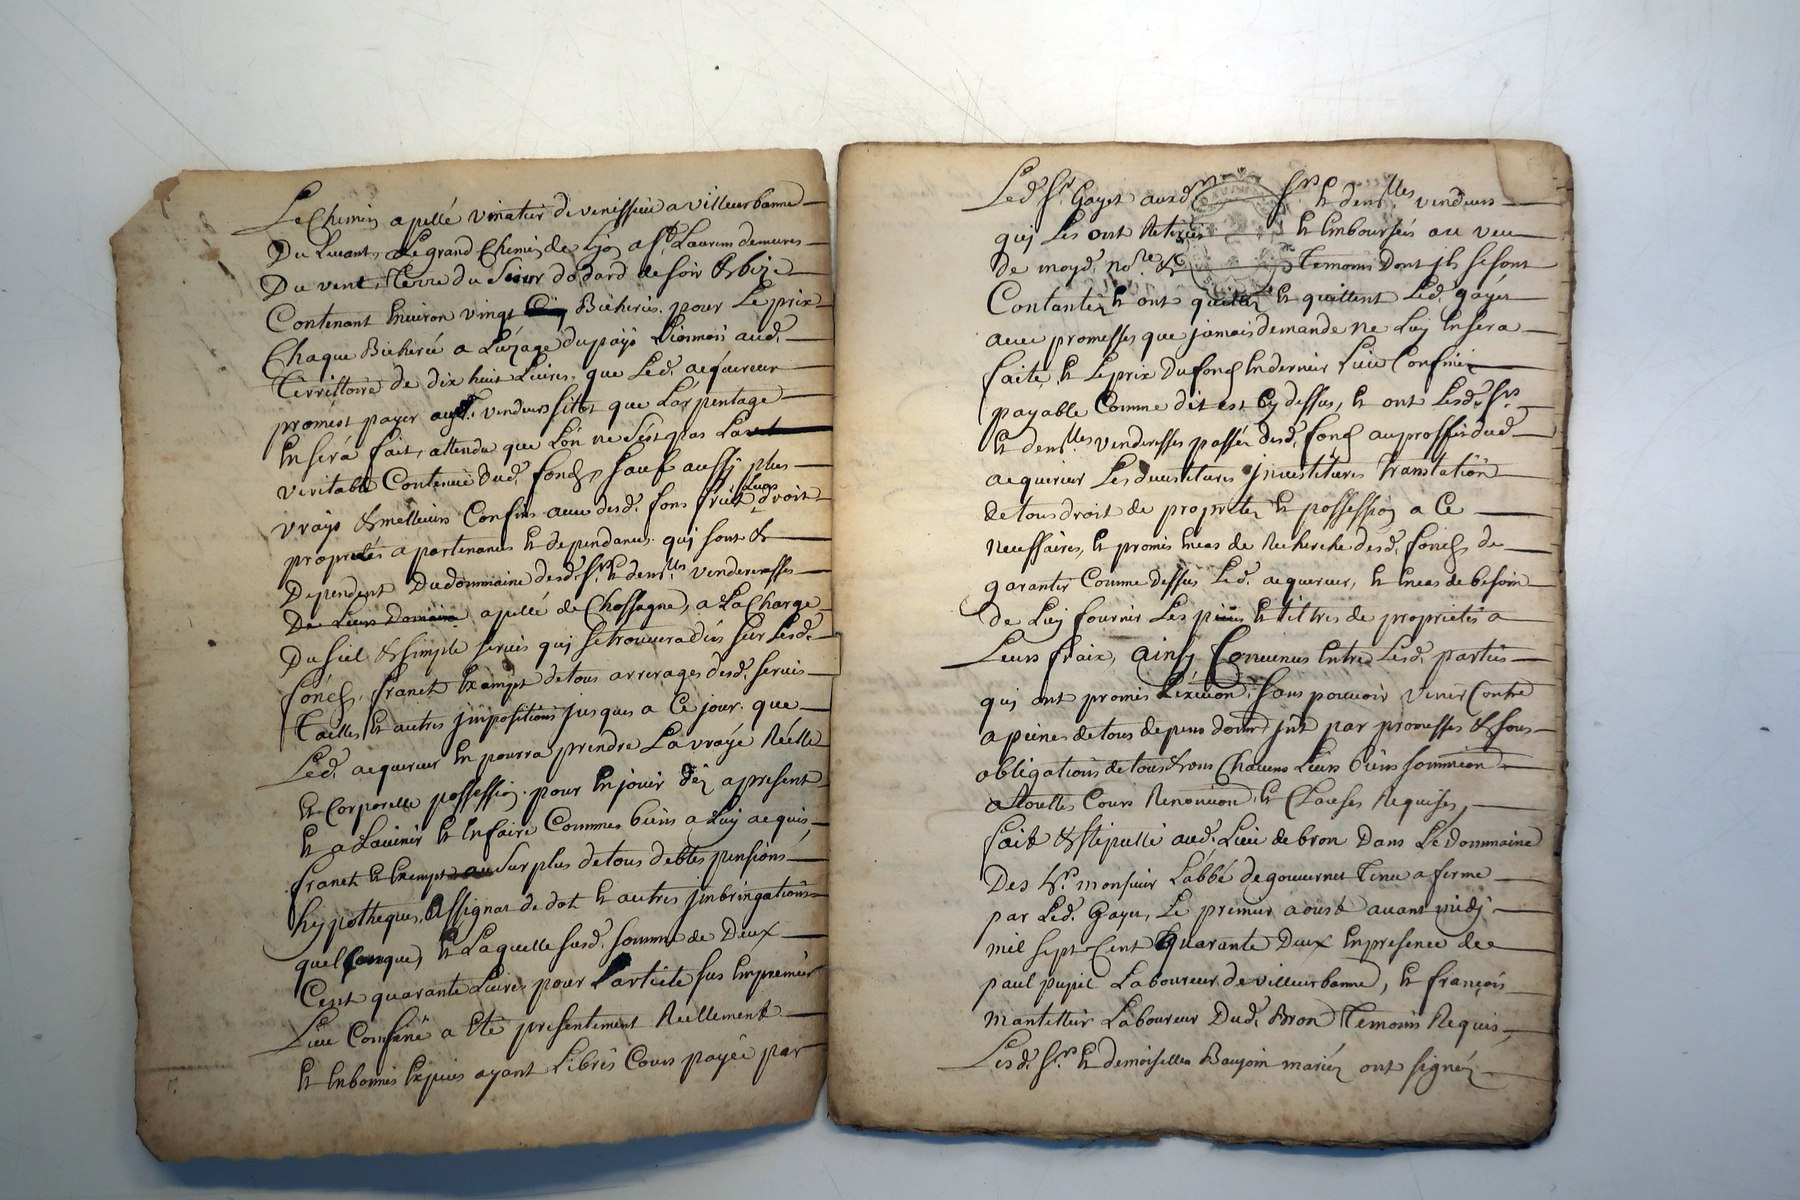 Le Chemin apellé vinatier de venissieu a villeurbanne
Du Levant, Le grand Chemin de Lyon a St Laurens demures
Du vent, Terre du Sieur dodard de soir & bize
Contenant Environ vingt Bicherées pour Le prix
Chaque Bicherée a Luzage du pays Lionnois aud.
Territtoire de dix huit Livres, que Led. acquereur
promest payer vendeurs sitôt que L'arpentage
En serà fait, attendu que L'on ne sést pas La
veritable Contenue dud. fonds, sauf aussy plus
vrays & meilleurs Confins avec desd. fons fruits Leurs droits
proprietés apartenances Et dependances qui sont &
Dependent Du dommaine desd. Srs Et demlles venderesses
De Leurs Domaine apellé de Chassagne, a La Charge
Du Siel & Simple servis qui se trouvera dûs sur Lesd.
fonds, franch Exampt de tous arrerages desd. servis
Tailles Et autres jmpositions jusques a Ce jour, que
Led. acquereur En pourra prendre La vraÿe Réelle
Et Corporelle possession pour En jouir dez a present
Et a L'avenir Et En faire Comme biens a Luy acquis,
franch Et Exempt au surplus de tous debtes pensions
hypotheques, Assignat de dot Et autres jnbringations
quelConque, Et Laquelle susd. somme de Deux
Cent quarante Livres pour L'article sus En premier
Lieu Confiné a Eté presentement Réellement
Et En bonnes Espeices ayant Libres Cours payée par
Led. Sr Gayet auxd Srs Et demlles vendeurs
qui Les ont Retirées Et Emboursées au veu
de moyd. nore & Temoins Dont jls se sont
Contantez Et ont quitté Et quittent Led. gayet
avec promesses que jamais demande ne Luy En sera
faite, Et Le prix Du fonds En dernier Lieu Confiné
payable Comme dit est Cy dessus, Et ont Lesd. Srs
Et demlles venderesses passés desd. fonds au proffit dud
acquereur Les devestitures jnvestitures Translation
de tous droit de proprietez Et possession a Ce
Necessaires, Et promis En cas de Recherche desd. fonds de
garantir Comme dessus Led. acquereur, Et En cas de besoin
de Luy fournir Les pieces Et titres de proprietés a
Leurs fraix, ainsy Convenues Entre Lesd. parties
qui ont promis L'éxécuon, sans pouvoir venir Contre
a peines de tous depens dom. jnt. par promesses & sous
obligations de tous & uns Chacuns Leurs biens soumision
a toutes Cours Renonciaon, Et Clauses Requises,
fait & stipullé aud. Lieu de bron Dans Le dommaine
Des hrs monsieur L'abbé de gouvernet Tenu a ferme
par Led. Gayet, Le premier aoust avant midj
mil sept Cent Quarante Deux En presence de
paul pupil Laboureur de villeurbanne, Et françois
mantettier Laboureur Dud. Bron Temoins Requis,
Lesd. Srs Et demoiselles Baujoin mariéz ont signéz